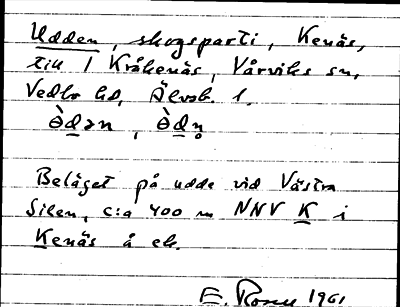 Udden, skogsparti, Kenäs,
till 1 Kråkenäs, Vårviks sn,
Vedbo hd, Älvsb. l.
Òdən, Òdn̥
Beläget på udde vid Västra
Silen, c:a 400 m NNV K i
Kenäs å ek.
E. 1961